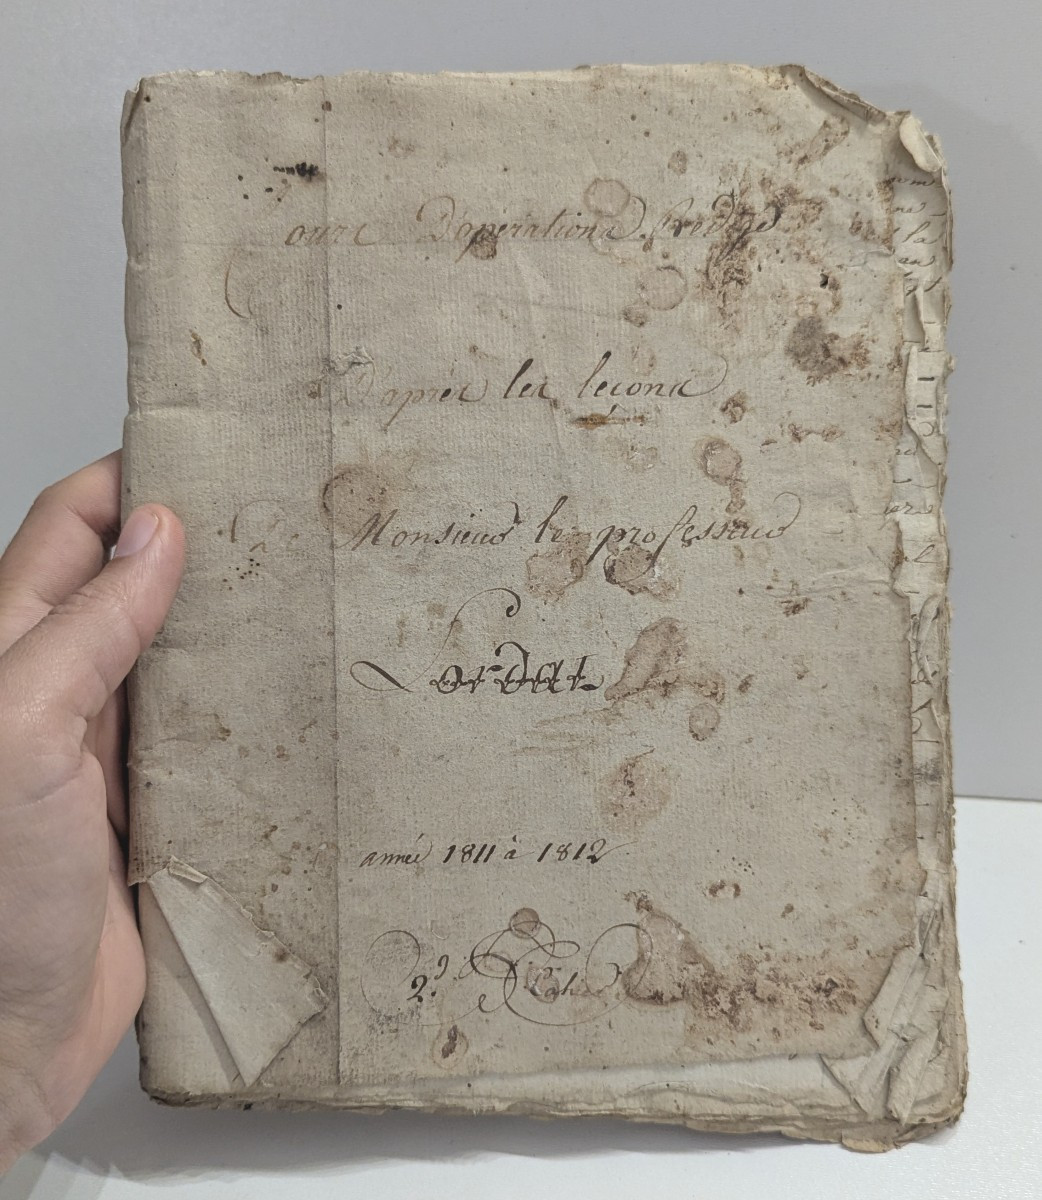 Cours D'opérations Rédigé
D'après les leçons
De Monsieur le professeur
Lordat
année 1811 à 1812
2d. Cahier